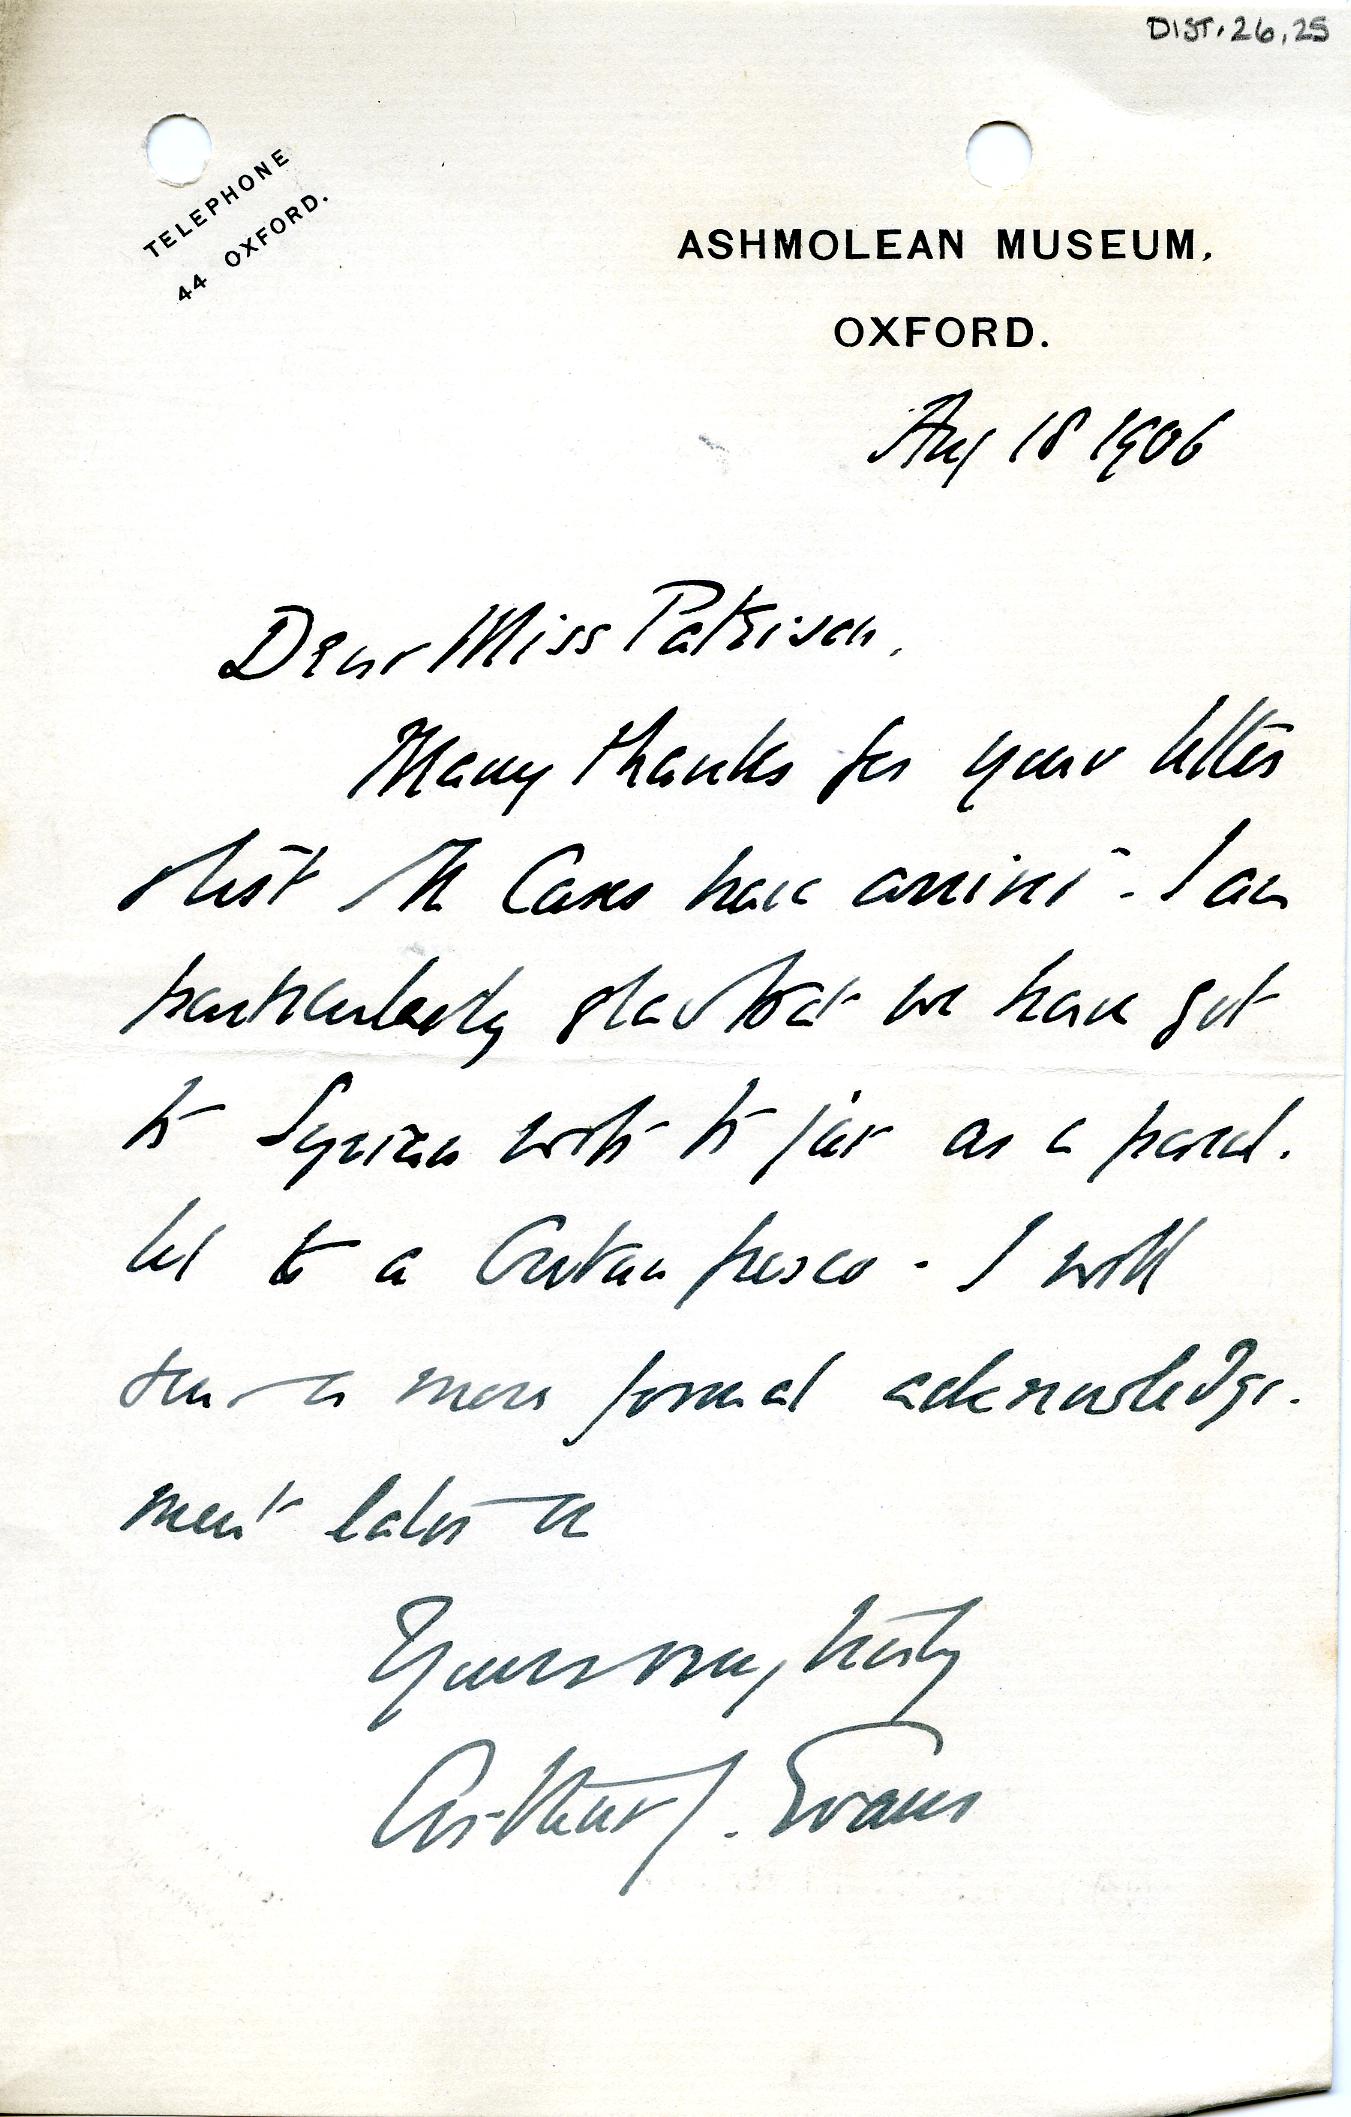 DIST.26.25
TELEPHONE
44 OXFORD.
ASHMOLEAN MUSEUM,
OXFORD.
Aug 18 1906
Dear Miss Paterson,
Many thanks for your letter
& list The Cases have arrived - I am
particularly glad that we have got
the Syrian with the jar as a paral-
lel to a Cretan fresco - I will
send a more formal acknowledge-
ment later on
Yours very truly
Arthur J. Evans